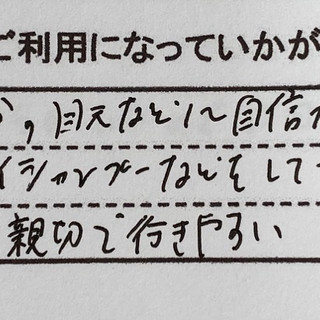 ご利用になっていかが
か,目元などに自信が
イシャンプーなどをして
親切で行きやすい